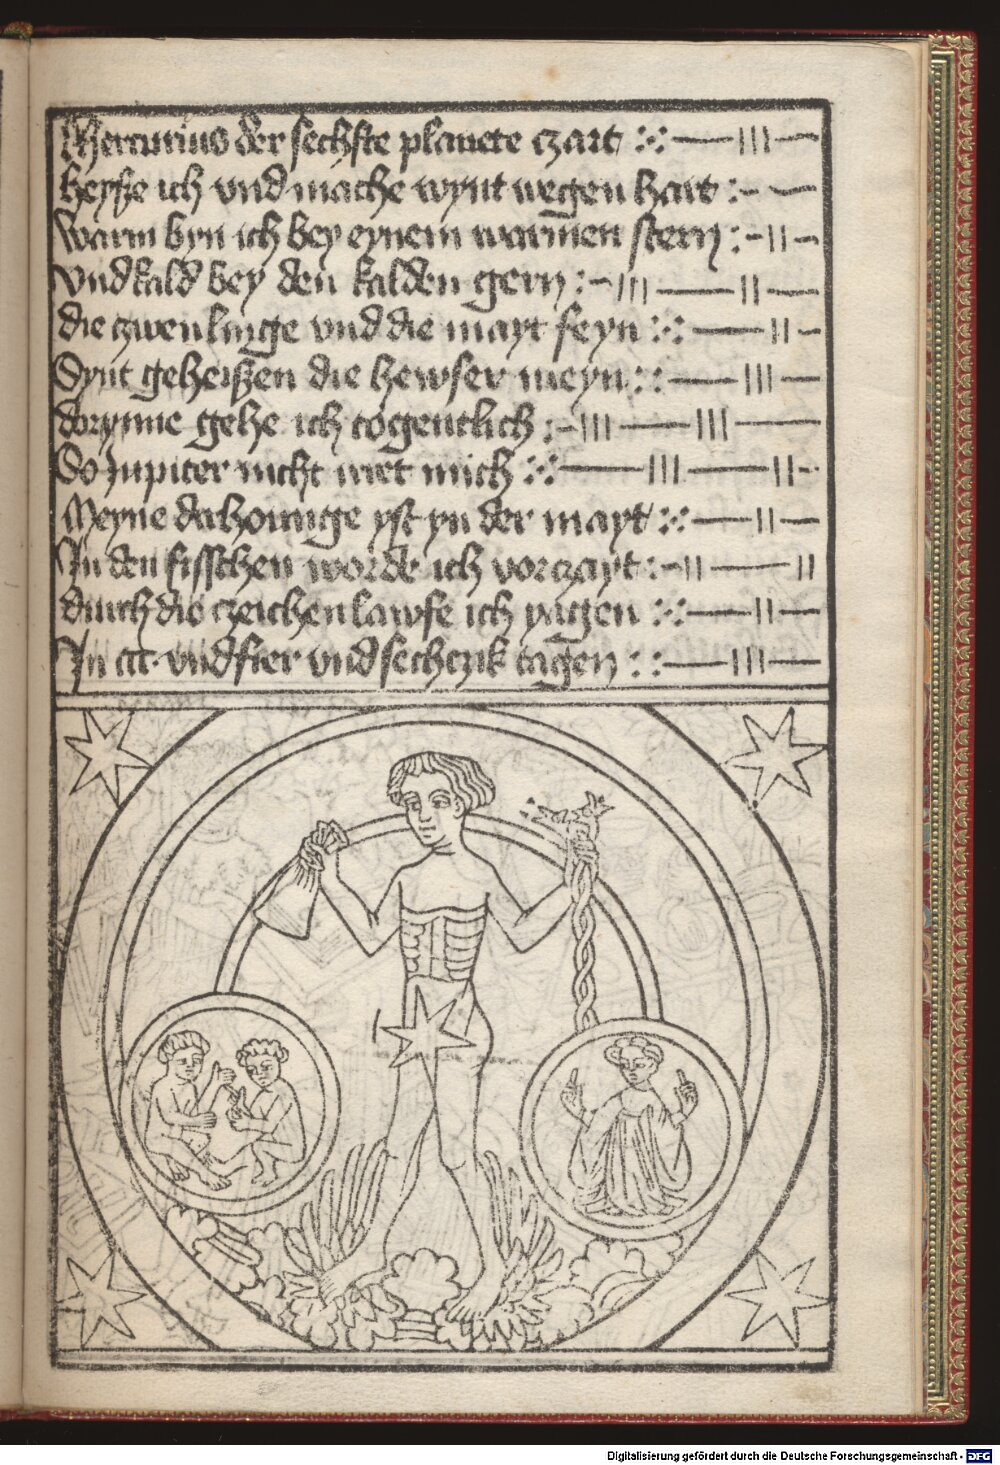 Mercurius der sechste planete czart
heyse ich vnd mache wynt wegen hart
Warm byn ich bey eynem warmen stern
vnd kald bey den kalden gern
die czwenlinge vnd die mayt feyn
Synt geheissen die hewser meyn
dorynne gehe ich togentlich
So Jupiter nicht jrret mich
Meyne derhounge yst yn der mayt
In den fisschen worde ich vorczayt
durch die czeichen lawfe ich yagen
In ccc vnd fier vnd sechczik tagen
Digitalisierung gefördert durch die Deutsche Forschungsgemeinschaft - DFG